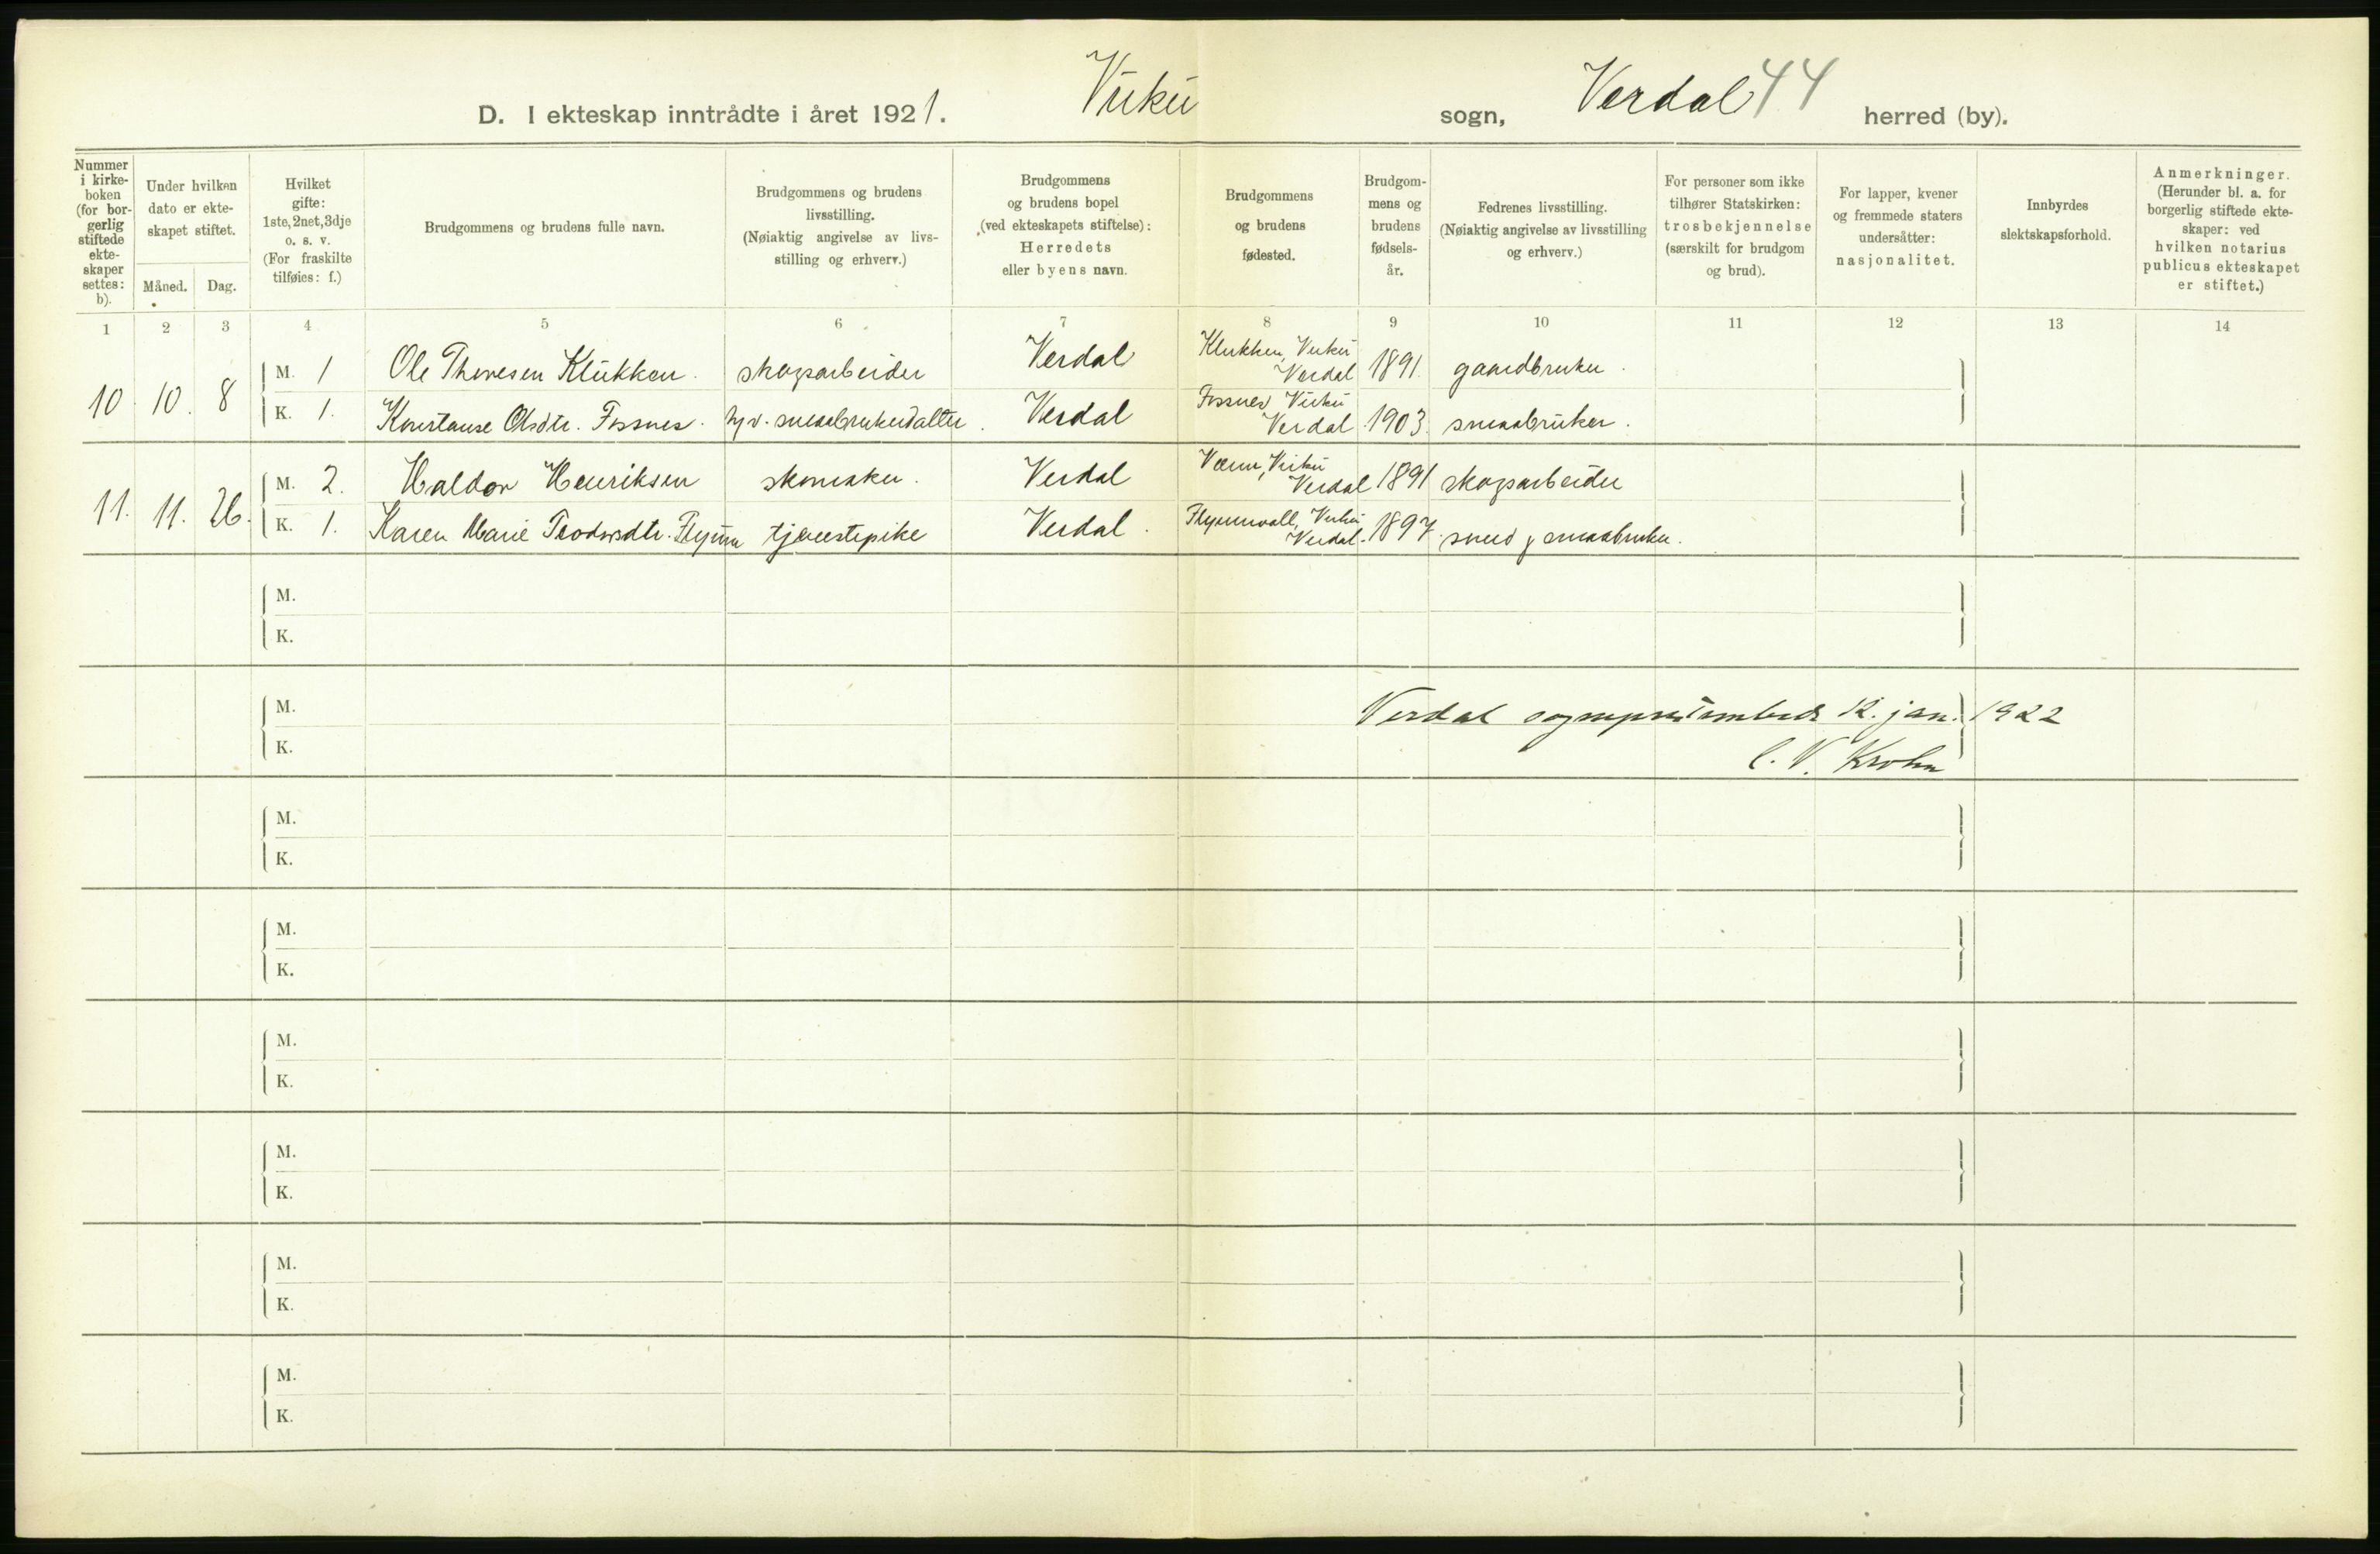 D. I ekteskap inntrådte i året 1921. Vuku sogn, Verdal 44 herred (by).
Nummer i kirke-boken (for bor-gerlig stiftede ekte-skaper settes: b).
Under hvilken dato er ekte-skapet stiftet.
Måned. Dag.
Hvilket gifte: 1ste, 2net, 3dje o. s. v. (For fraskilte tilføies: f.)
Brudgommens og brudens fulle navn.
Brudgommens og brudens livsstilling. (Nøiaktig angivelse av livs-stilling og erhverv.)
Brudgommens og brudens bopel (ved ekteskapets stiftelse): Herredets eller byens navn.
Brudgommens og brudens fødested.
Brudgom-mens og brudens fødsels-år.
Fedrenes livsstilling. (Nøiaktig angivelse av livsstilling og erhverv.)
For personer som ikke tilhører Statskirken: trosbekjennelse (særskilt for brudgom og brud).
For lapper, kvener og fremmede staters undersåtter: nasjonalitet.
Innbyrdes slektskapsforhold.
Anmerkninger. (Herunder bl. a. for borgerlig stiftede ekte-skaper: ved hvilken notarius publicus ekteskapet er stiftet.)
1 2 3 4 5 6 7 8 9 10 11 12 13 14
10. 10. 8 M. 1 Ole Thoresen Klukken. skogsarbeider Verdal Klukken, Vuku Verdal 1891. gaardbruker.
K. 1. Konstanse Olsdtr. Fossnes. smaabrukerdatter. Verdal Fossnes, Vuku Verdal 1903. smaabruker.
11. 11. 26. M. 2. Haldor Henriksen skomaker. Verdal Vuku Verdal 1891 skogsarbeider
K. 1. Karen Marie tjenestepike Verdal. Vuku Verdal. 1897. smed smaabruker.
M.
K.
M.
K.
Verdal sogneprestembede 12. jan. 1922
C. V. Krohn
M.
K.
M.
K.
M.
K.
M.
K.
M.
K.
M.
K.